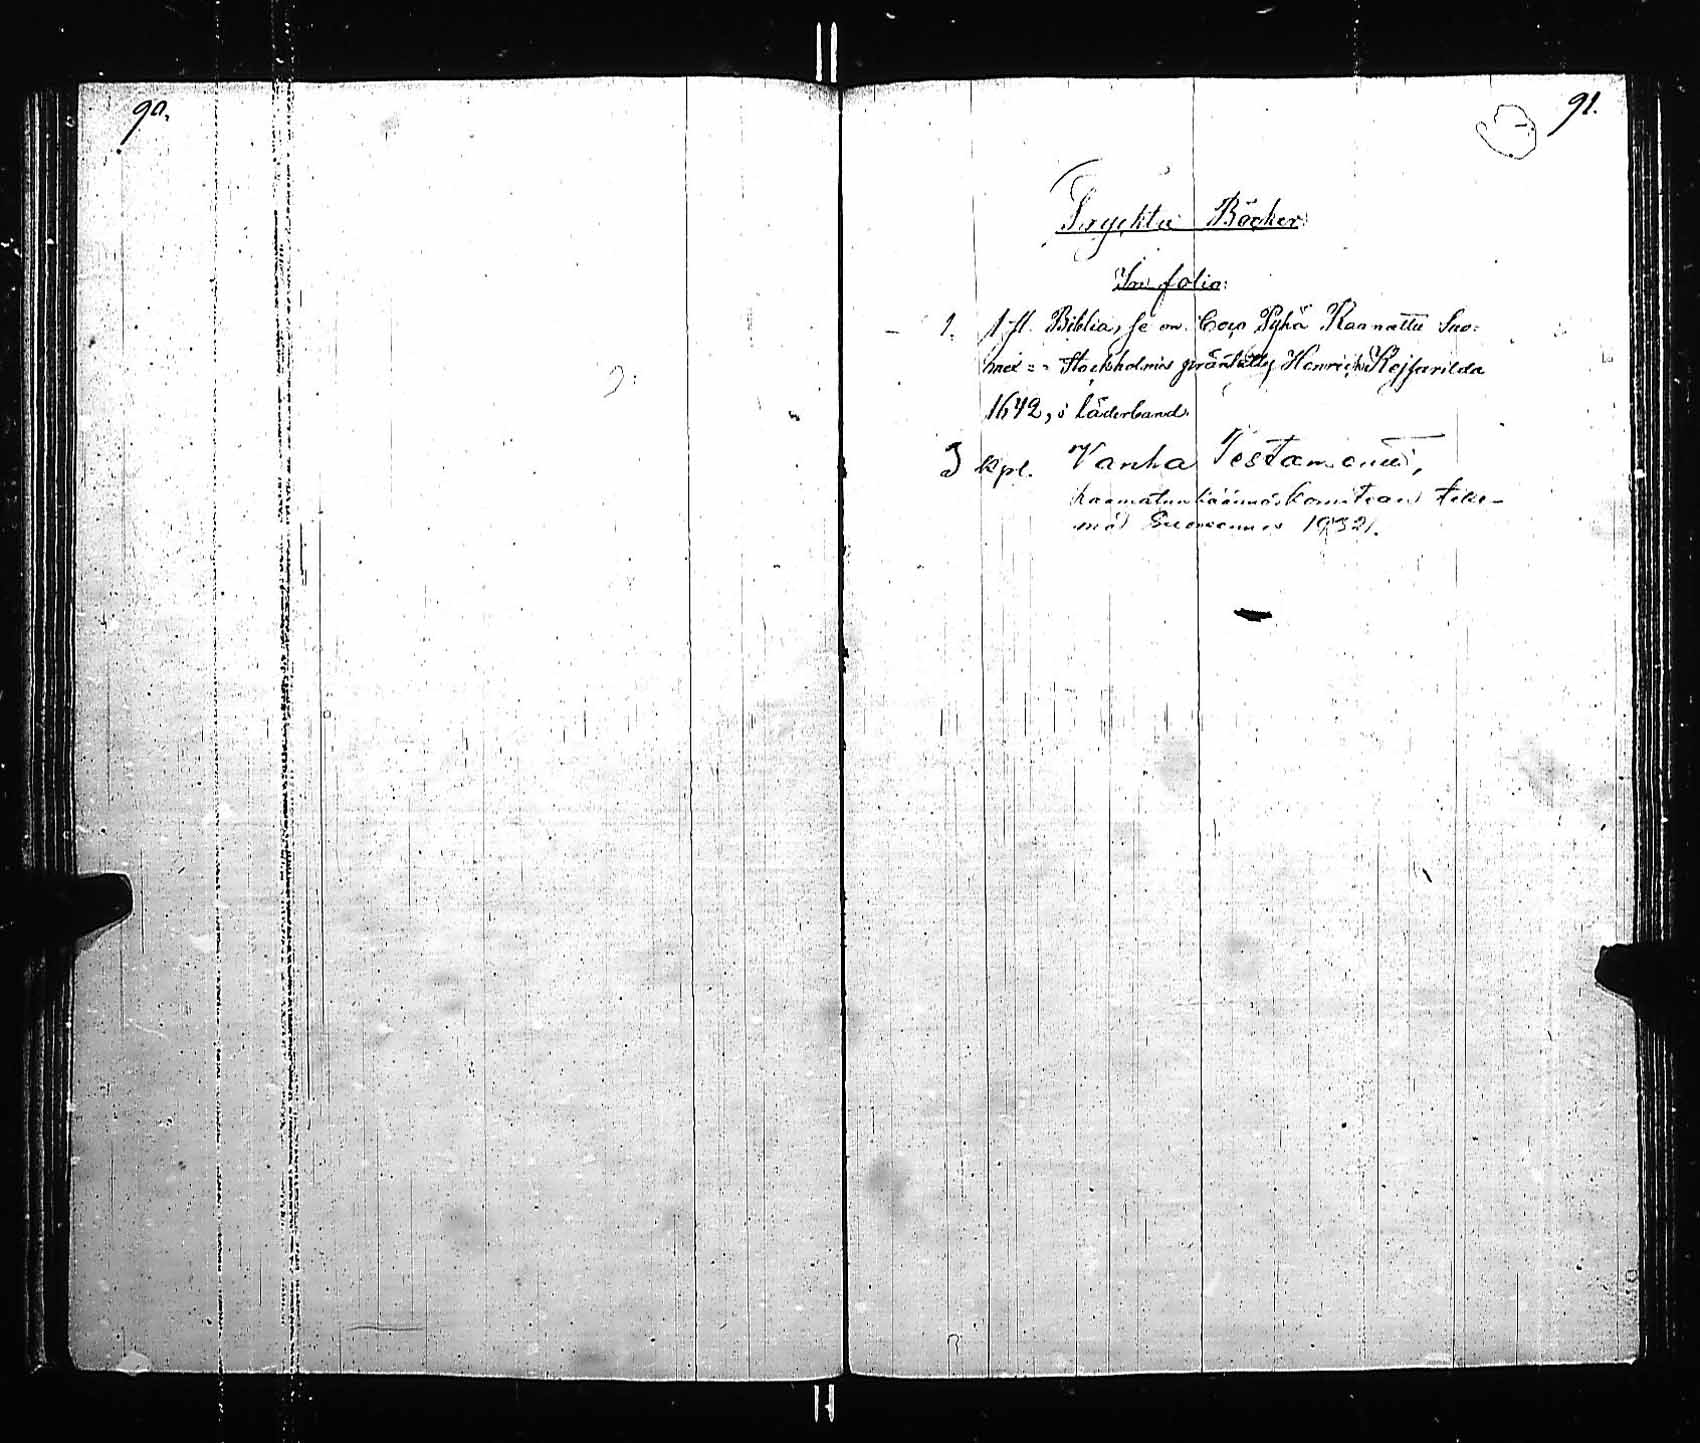 90.
91.
Tryckta Böcker
In folio:
1. 1 st. Biblia, se on: Coco Pyhä Raamattu Suo-
mex = - Stockholmis präntätty Henrich Kejsarilda
1642, i läderband.
3 kpl. Vanha Testamentti,
Raamatunkäännöskomitean teke-
mä Suomennos 1932.